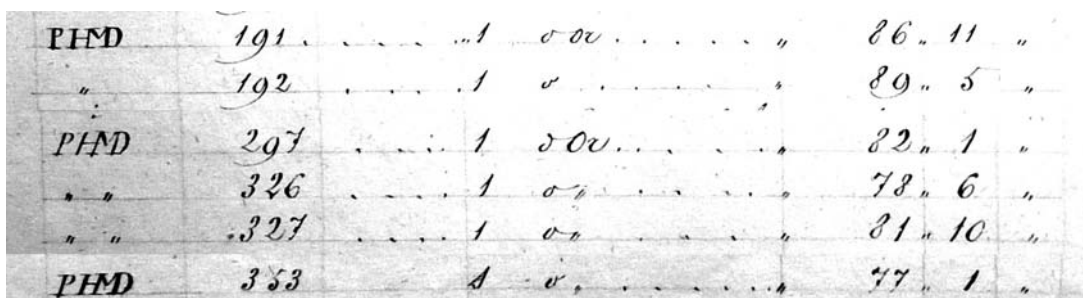 PHMD 191 . . . . . 1 o or . . . . . " 86 " 11 "
" 192 . . . . . 1 o . . . . . " 89 " 5 "
PHMD 297 . . . . . 1 o or . . . . . " 82 " 1 "
" " 326 . . . . . 1 o " . . . . . " 78 " 6 "
" " 327 . . . . . 1 o " . . . . . " 81 " 10 "
PHMD 353 1 o . . . . . . " 77 " 1 "